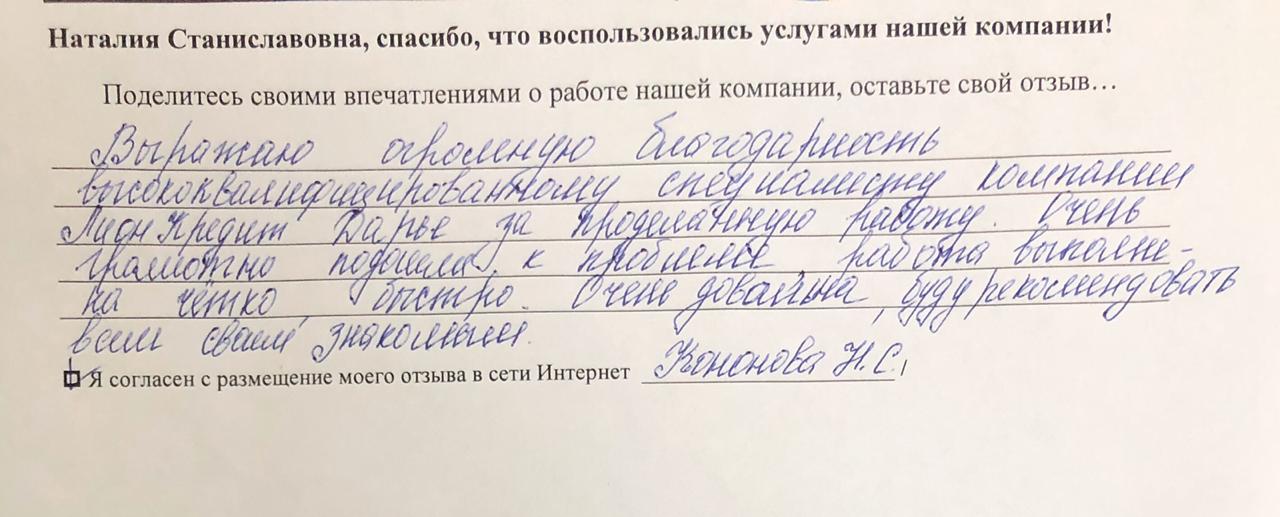 Наталия Станиславовна, спасибо, что воспользовались услугами нашей компании!
Поделитесь своими впечатлениями о работе нашей компании, оставьте свой отзыв…
Выражаю огромную благодарность
высококвалифицированному специалисту компании
Лион Кредит Дарье за проделанную работу. Очень
грамотно подошла к проблеме работа выполне-
на чётко, быстро. Очень довольна, буду рекомендовать
всем своим знакомым.
Я согласен с размещение моего отзыва в сети Интернет Кононова Н.С.